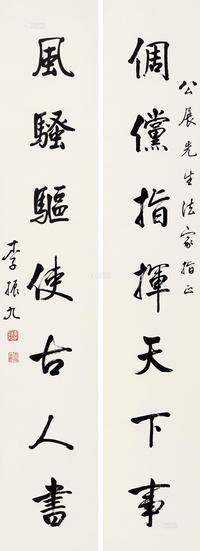 公展先生法家指正
倜儻指揮天下事
風騷驅使古人書
李振九